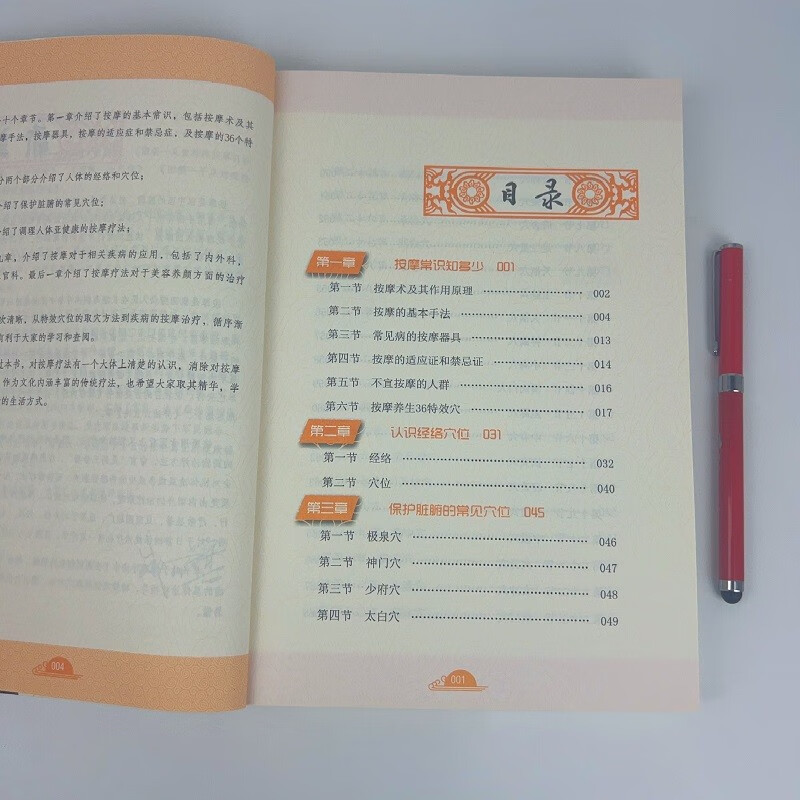 十个章节。第一章介绍了按摩的基本常识，包括按摩术及其
摩手法，按摩器具，按摩的适应症和禁忌症，及按摩的36个特
分两个部分介绍了人体的经络和穴位；
介绍了保护脏腑的常见穴位；
绍了调理人体亚健康的按摩疗法；
九章，介绍了按摩对于相关疾病的应用，包括了内外科，
官科。最后一章介绍了按摩疗法对于美容养颜方面的治疗
次清晰，从特效穴位的取穴方法到疾病的按摩治疗，循序渐
有利于大家的学习和查阅。
本书，对按摩疗法有一个大体上清楚的认识，消除对按摩
作为文化内涵丰富的传统疗法，也希望大家取其精华，学
的生活方式。
004
目录
第一章 按摩常识知多少 001
第一节 按摩术及其作用原理 002
第二节 按摩的基本手法 004
第三节 常见病的按摩器具 013
第四节 按摩的适应证和禁忌证 014
第五节 不宜按摩的人群 016
第六节 按摩养生36特效穴 017
第二章 认识经络穴位 031
第一节 经络 032
第二节 穴位 040
第三章 保护脏腑的常见穴位 045
第一节 极泉穴 046
第二节 神门穴 047
第三节 少府穴 048
第四节 太白穴 049
001